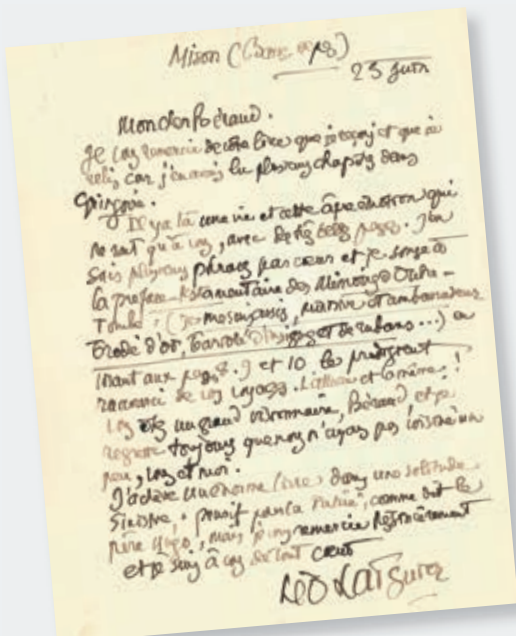 Mison (Basses Alpes)
23 juin
Mon cher Béraud.
Je vous remercie de votre livre que je reçois et que je
relis, car j'en avais lu plusieurs chapitres dans
Gringoire.
Il y a là une vie et cette âpre émotion qui
ne sont qu'à vous, avec de très belles pages. J'en
sais plusieurs phrases par cœur et je songe à
la préface testamentaire des Mémoires d'Outre-
Tombe : (Je me suis assis, ministre et ambassadeur
brodé d'or, bariolé d'insignes et de rubans...) en
lisant aux pages 9 et 10 le prodigieux
raccourci de vos voyages. L'allure est la même !
Vous êtes un grand visionnaire, Béraud et je
regrette toujours que nous n'ayons pas voisiné un
peu, vous et moi.
J'achève un énorme livre dans une solitude
sinistre, " pensif par la ", comme dit le
père Hugo, mais je vous remercie
et je suis à vous de tout cœur
Léo Larguier